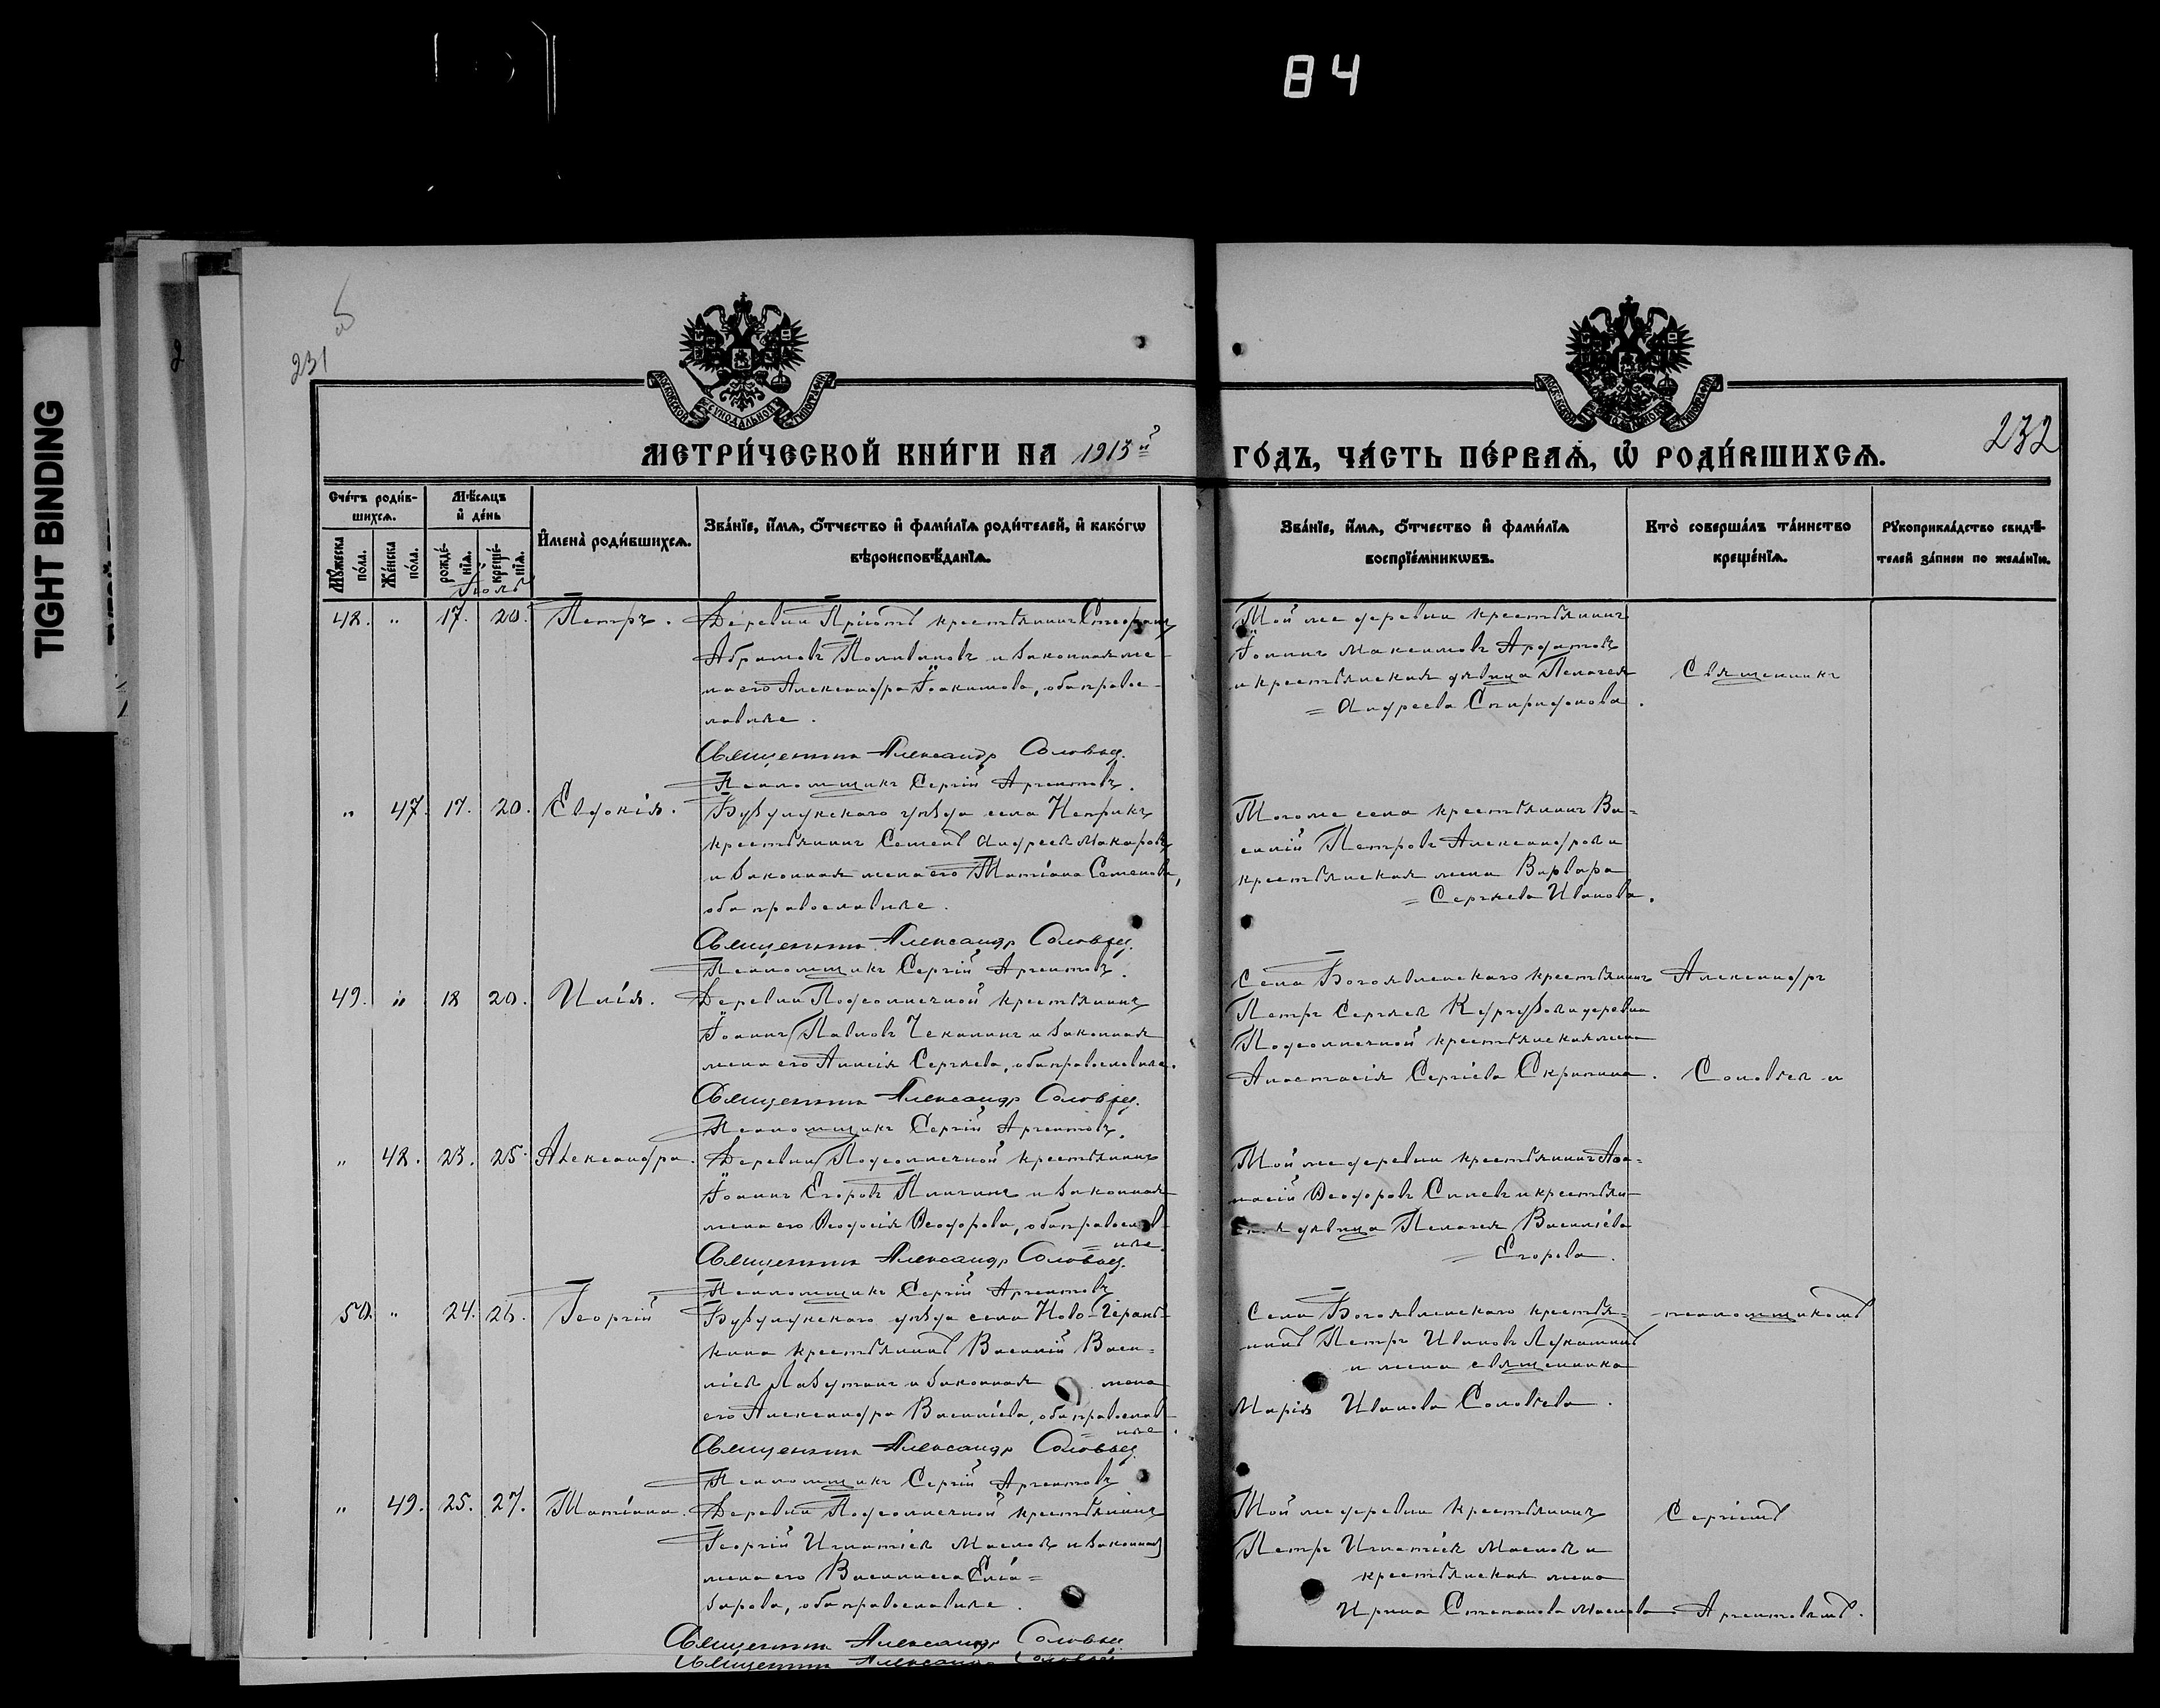 84
TIGHT BINDING
231
232
МОСКОВСКОЙ СѴНОДАЛЬНОЙ ТИПОГРАФІИ
МЕТРИ́ЧЕСКОЙ КНИ́ГИ НА 1913й
ГО́ДЪ, ЧА́СТЬ ПЕ́РВАѦ, Ѽ РОДИ́ВШИХСѦ.
Сче́тъ роди́в-
шихсѧ.
Мꙋ́жеска по́ла.
Же́нска по́ла.
Мѣ́сѧцъ и҆ де́нь
рожде́-нїѧ.
креще́-нїѧ.
И҆мена̀ роди́вшихсѧ.
Зва́нїе, и҆́мѧ, ѻ҆́тчество и҆ фами́лїѧ роди́телей, и҆ како́гѡ
вѣроисповѣ́данїѧ.
Зва́нїе, и҆́мѧ, ѻ҆́тчество и҆ фами́лїѧ
воспрїе́мникѡвъ.
Кто̀ соверша́лъ та́инство
креще́нїѧ.
Рꙋкоприкла́дство свидѣ́-
телей за́писи по жела́нїю.
Іюль
48. " 17. 20. Петръ.
Деревни Пріютъ крестьянинъ Стефанъ
Абрамовъ Поливановъ и законная же-
на его Александра Іоакимова, оба правос-
лавные.
Священник Александр Соловьев.
Псаломщикъ Сергій Аргентовъ.
Той же деревни крестьянинъ
Іоаннъ Максимовъ Ардатовъ
и крестьянская дѣвица Пелагея
= Андреева Спиридонова.
Священникъ
" 47. 17. 20. Евдокія.
Бузулукскаго уѣзда села Неприкъ
крестьянинъ Семенъ Андреевъ Макаровъ
и законная жена его Татіана Семенова,
оба православные.
Священник Александр Соловьев.
Псаломщикъ Сергій Аргентовъ.
Того же села крестьянинъ Ва-
силій Петровъ Александров и
крестьянская жена Варвара
= Сергѣева Иванова.
49. " 18 20. Илія.
Деревни Подсолнечной крестьянинъ
Іоаннъ Павловъ Чекалинъ и законная
жена его Анисія Сергѣева, оба православные.
Священник Александр Соловьев.
Псаломщикъ Сергій Аргентовъ.
Села Богоявленскаго крестьянинъ
Петръ Сергѣев и деревни
Подсолнечной крестьянская жена
Анастасія Сергіева Скрипина.
Александръ
Соловьев и
" 48. 23. 25. Александра.
Деревни Подсолнечной крестьянинъ
Іоаннъ Егоровъ и законная
жена его Ѳеодосія Ѳеодорова, оба православ-
= ные.
Священник Александр Соловьев.
Псаломщикъ Сергій Аргентовъ
Той же деревни крестьянинъ Аѳа-
насій Ѳеодоровъ Синев и крестьян-
ская дѣвица Пелагея Василіева
= Егорова.
50. " 24. 26. Георгій
Бузулукскаго уѣзда села Ново-Геранькина
крестьянинъ Василій Васи-
ліев Лазуткинъ и законная жена
его Александра Василіева, оба православ-
= ные.
Священник Александр Соловьев
Псаломщикъ Сергій Аргентовъ
Села Богоявленскаго крестья-
нинъ Петръ Ивановъ Лукашинъ
и жена священника
Марія Иванова Соловьева.
псаломщикомъ
" 49. 25. 27. Татіана.
Деревни Подсолнечной крестьянинъ
Георгій Игнатіев Маслов и законная
жена его Василисса Елеа-
зарова, оба православные.
Священник Александр Соловьев
Той же деревни крестьянинъ
Петръ Игнатіев Маслов и
крестьянская жена
Ирина Степанова Маслова.
Сергіемъ
Аргентовымъ.
Священник Александр Соловьев